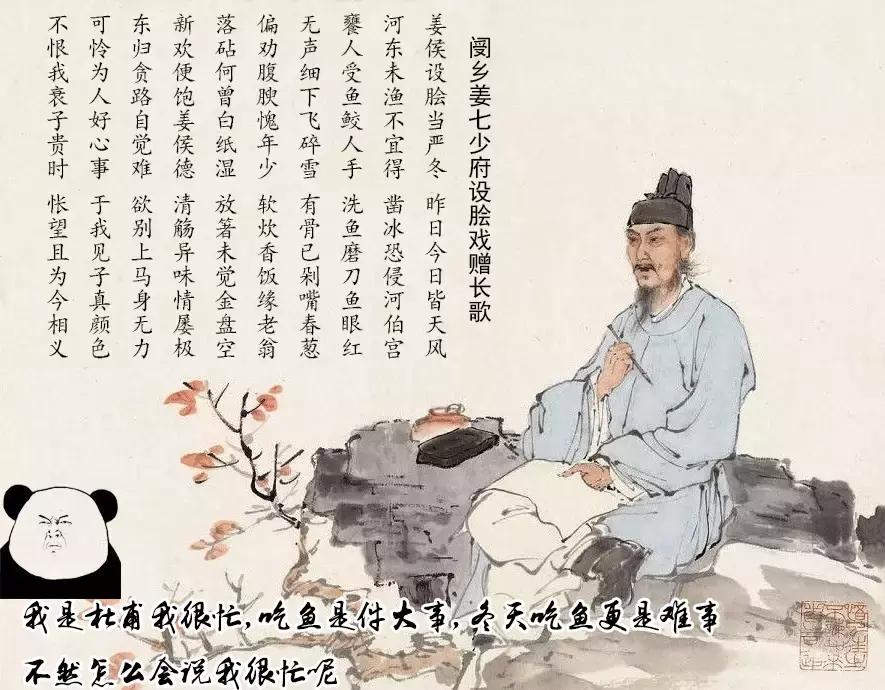 阌乡姜七少府设脍戏赠长歌
姜侯设脍当严冬 昨日今日皆天风
河东未渔不宜得 凿冰恐侵河伯宫
饔人受鱼鲛人手 洗鱼磨刀鱼眼红
无声细下飞碎雪 有骨已剁嘴春葱
偏劝腹腴愧年少 软炊香饭缘老翁
落砧何曾白纸湿 放箸未觉金盘空
新欢便饱姜侯德 清觞异味情屡极
东归贪路自觉难 欲别上马身无力
可怜为人好心事 于我见子真颜色
不恨我衰子贵时 怅望且为今相义
我是杜甫我很忙,吃鱼是件大事,冬天吃鱼更是难事
不然怎么会说我很忙呢